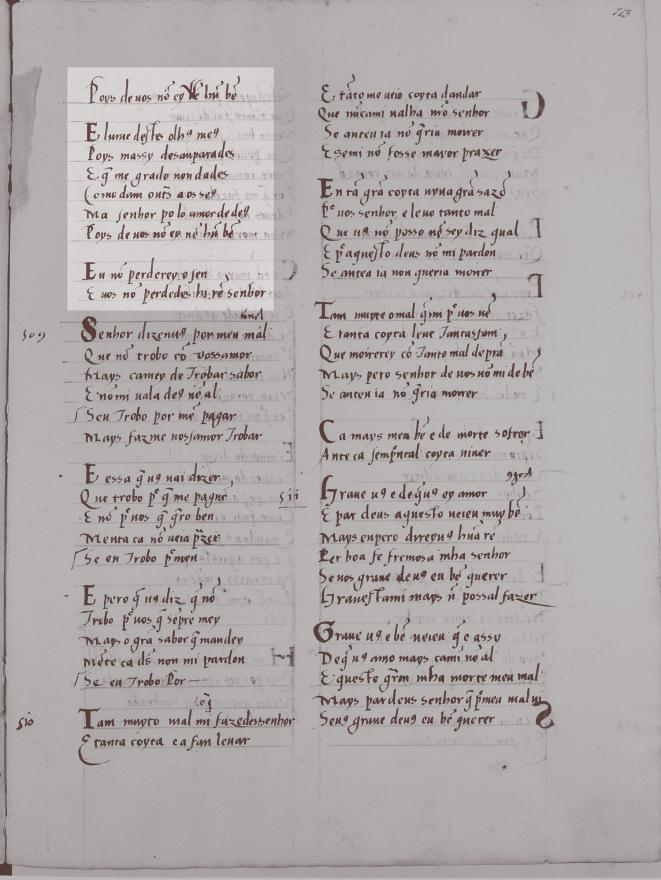 113
Poys de uos nō ey nē hū bē
E lume destes olhꝯ meꝯ
Poys massy desanparades
E q̄ me grado non dades
Como dam outs̄ aos seꝯ
Ma senhor polo amor de deꝯ
Poys de uos nō ey nē hū bē
Eu nō perderey o sen
E uos nō perdedes hi rē senhor
509
Senhor dizenuꝯ por meu mal
Que nō trobo cō uossamor
Mays camey de Trobar sabor
E nō mi uala deꝯ nē al
Seu Trobo por mē pagar
Mays faz me uossamor Trobar
E essa q̄ uꝯ uai dizer
Que trobo pꝰ q̄ me pague
E nō pꝰ uos q̄ q̄ro ben
Menta ca nō ueia pz̄er
Se eu Trobo pꝰ men
E pero q̄ uꝯ diz q̄ nō
Trobo pꝰ uos q̄ sēpre mey
Mays o grā sabor q̄ mandey
Mēte ca ds̄ non mi pardon
Se eu Trobo Por
510
Tam muyto mal mi fazedes senhor
E tanta coyta e afan leuar
E tāto me ueio coyta dandar
Que nūca mi ualha nr̄o senhor
Se antei ia nō q̄ria morrer
E se mi nō fosse mayor prazer
En tā grā coyta uyua grā sazō
Pꝰ uos senhor e leuo tanto mal
Que uꝯ nō posso nē sey diz qual
E pꝰ aquesto deus nō mi pardon
Se antei ia non queria morrer
Tam muyto o mal q̄ mi pꝰ uos uē
E tanta coyta leue
Que moirerey cō Tanto mal de prā
Mays pero senhor de uos nō mi dē bē
Se antei ia nō q̄ria morrer
Ca mays meu bē e de morte sofrer
Ante ca sempr̄ en tal coyta uiuer
511
Graue uꝯ e de q̄ uꝯ ey amor
E par deus aquesto ueieu muy bē
Mays enpero direyuꝯ hūa rē
Per boa fe fremosa mha senhor
Se uos graue de uꝯ eu bē querer
Grauestami mays nō possal fazer
Graue uꝯ e bē ueieu q̄ e assy
De q̄ uꝯ amo mays cami nē al
E questo grā mha morte meu mal
Mays par deus senhor q̄ pꝰ meu mal ui
Seuꝯ graue deuꝯ eu bē querer